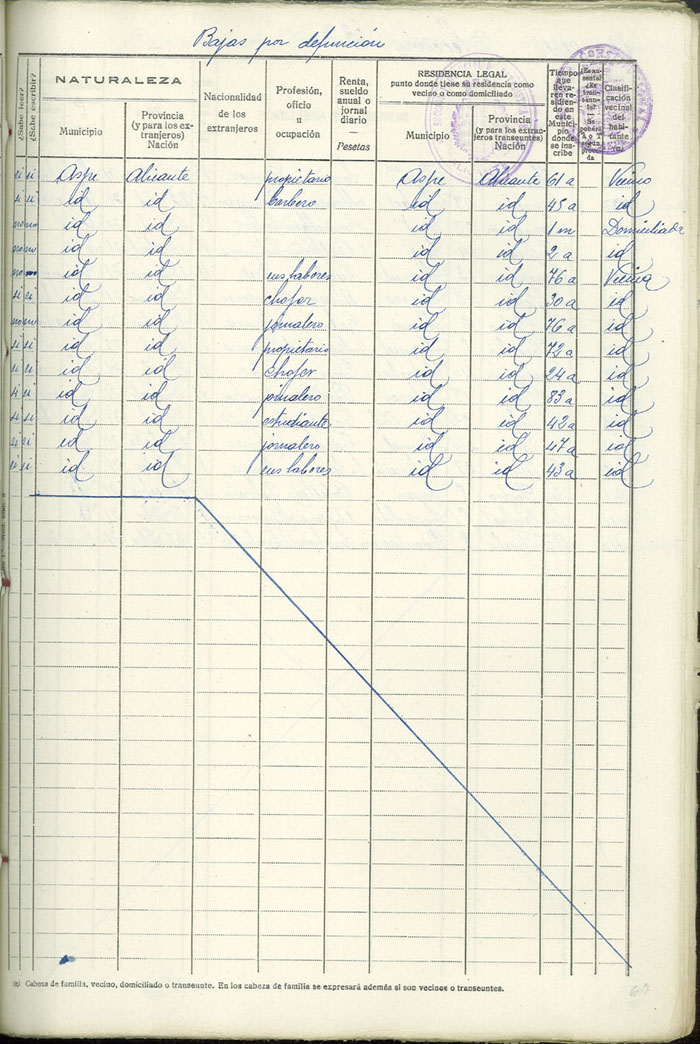 Bajas por defunción
¿Sabe leer?
¿Sabe escribir?
NATURALEZA
Municipio
Provincia (y para los extranjeros) Nación
Nacionalidad de los extranjeros
Profesión, oficio u ocupación
Renta, sueldo anual o jornal diario — Pesetas
RESIDENCIA LEGAL
punto donde tiene su residencia como vecino o como domiciliado
Municipio
Provincia (y para los extranjeros transeuntes) Nación
Tiempo que llevaren residiendo en este Municipio donde se inscribe
Clasificación vecinal del habitante
si si Aspe Alicante propietario Aspe Alicante 61 a Vecino
si si id id barbero id id 45 a id
no no id id id id 1 m Domiciliada
no no id id id id 2 a id
no no id id sus labores id id 76 a Vecina
si si id id chofer id id 30 a id
no no id id jornalero id id 76 a id
si si id id propietario id id 72 a id
si si id id chofer id id 24 a id
si si id id id id 83 a id
si si id id estudiante id id 42 a id
si si id id jornalero id id 47 a id
si si id id sus labores id id 43 a id
Cabeza de familia, vecino, domiciliado o transeunte. En los cabeza de familia se expresará además si son vecinos o transeuntes.